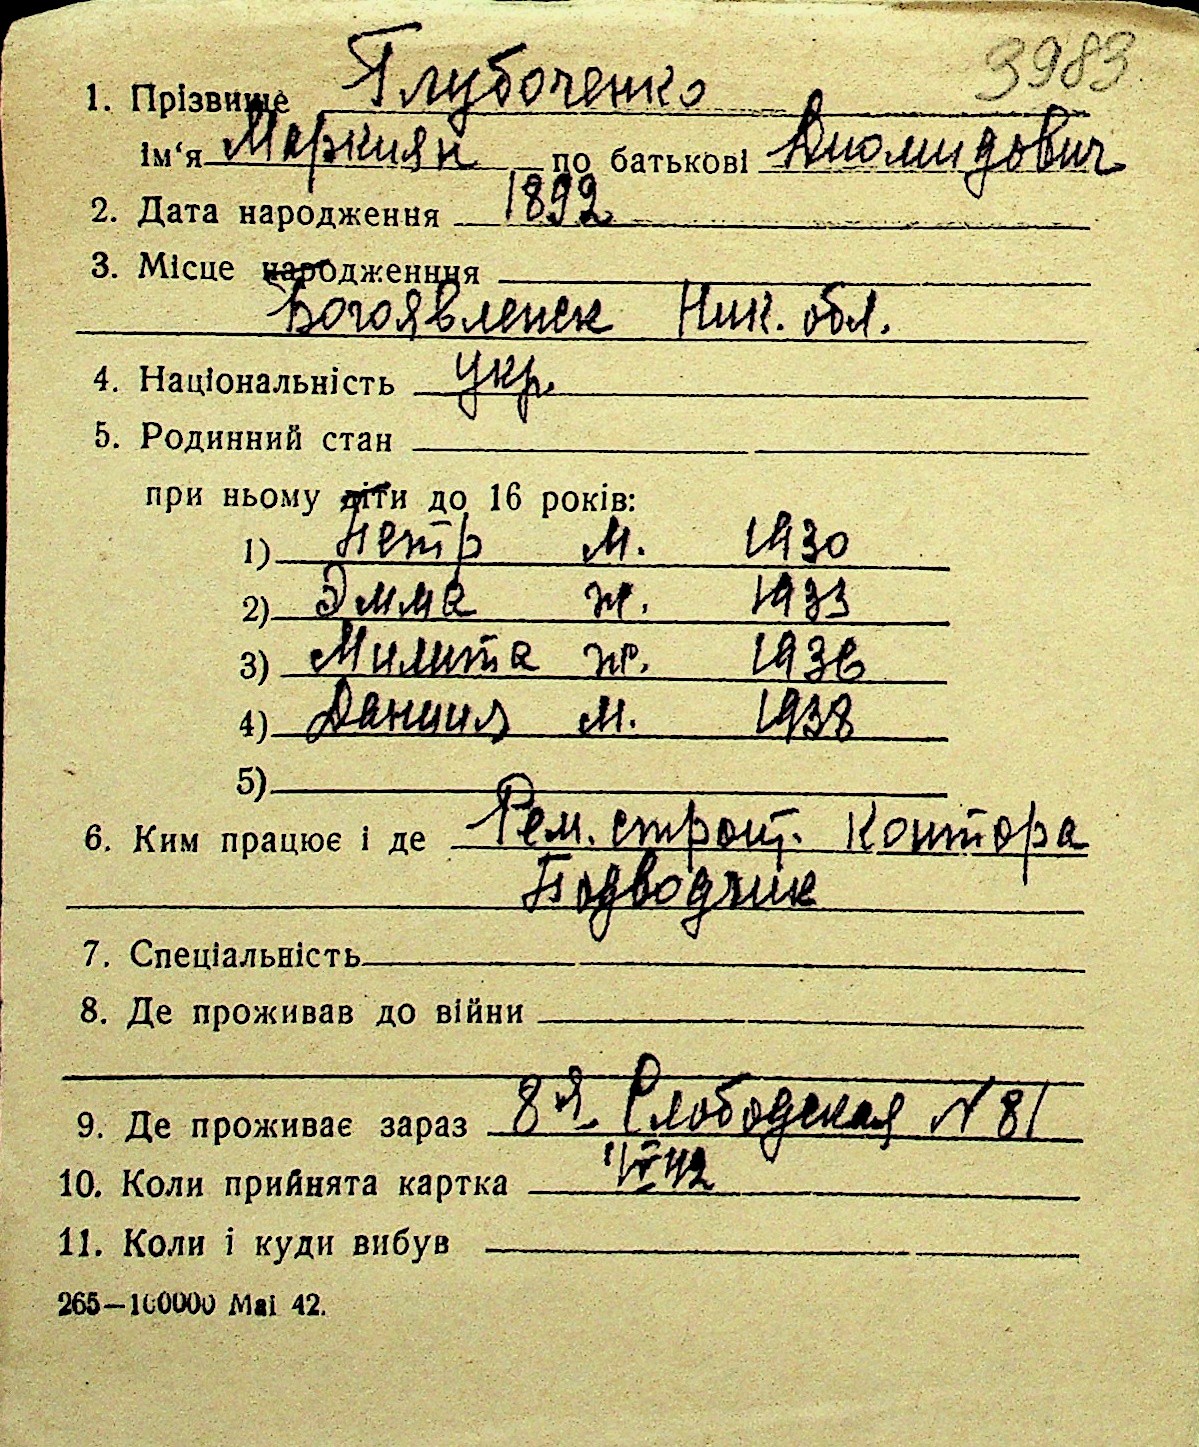 3983
1. Прізвище Глубоченко
ім‘я Маркиян по батькові Диомидович
2. Дата народження 1892
3. Місце народженння
Богоявленск Ник. обл.
4. Національність укр.
5. Родинний стан
при ньому діти до 16 років:
1) Петр м. 1930
2) Эмма ж. 1933
3) Милита ж. 1936
4) Даниил м. 1938
5)
6. Ким працює і де Рем. строит. контора
Подводчик
7. Спеціальність
8. Де проживав до війни
9. Де проживає зараз 8я Слободская N 81
10. Коли прийнята картка VI 42
11. Коли і куди вибув
265—100000 Маі 42.